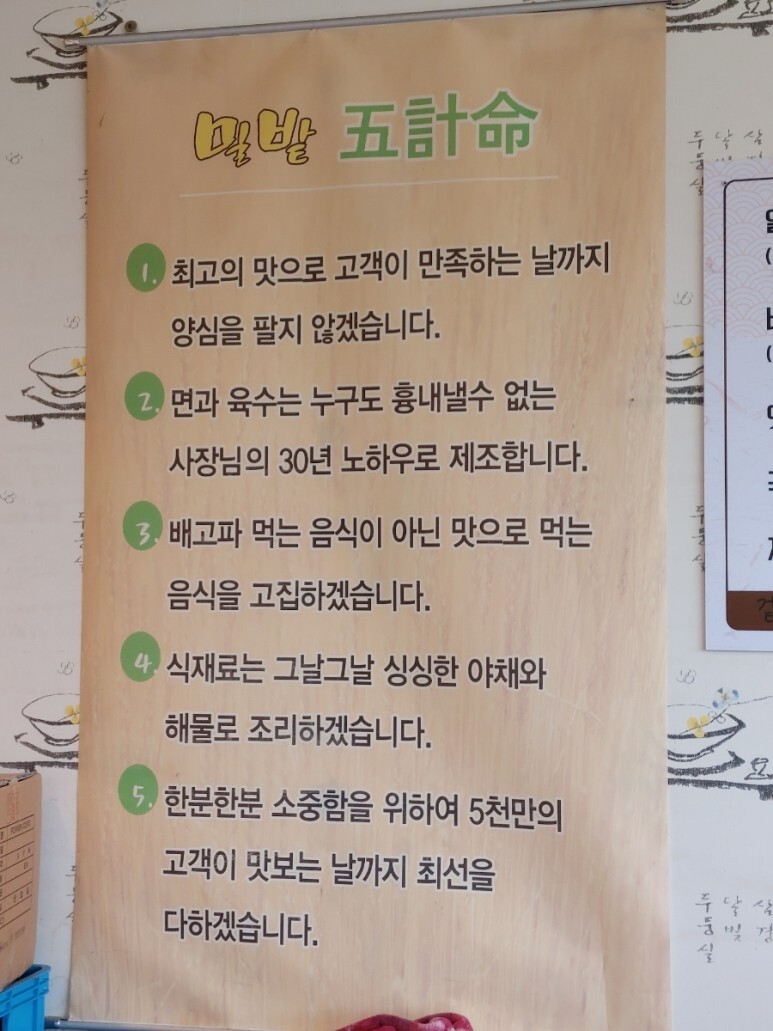 밀밭 五計命
1. 최고의 맛으로 고객이 만족하는 날까지
양심을 팔지 않겠습니다.
2. 면과 육수는 누구도 흉내낼수 없는
사장님의 30년 노하우로 제조합니다.
3. 배고파 먹는 음식이 아닌 맛으로 먹는
음식을 고집하겠습니다.
4. 식재료는 그날그날 싱싱한 야채와
해물로 조리하겠습니다.
5. 한분한분 소중함을 위하여 5천만의
고객이 맛보는 날까지 최선을
다하겠습니다.